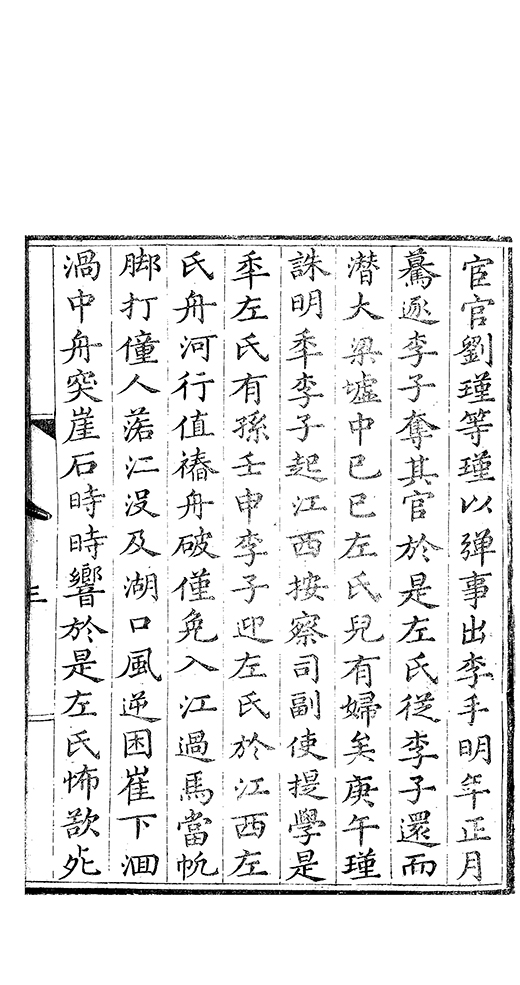 宦官劉瑾等瑾以彈事出李手明年正月
驀逐李子奪其官於是左氏從李子還而
潛大梁墟中已巳左氏兒有婦矣庚午瑾
誅明年李子起江西按察司副使提學是
年左氏有孫壬申李子迎左氏於江西左
氏舟河行值褚舟破僅免入江過馬當帆
脚打僮人落江沒及湖口風逆困崖下洄
渦中舟突崖石時時響於是左氏怖欲死
三